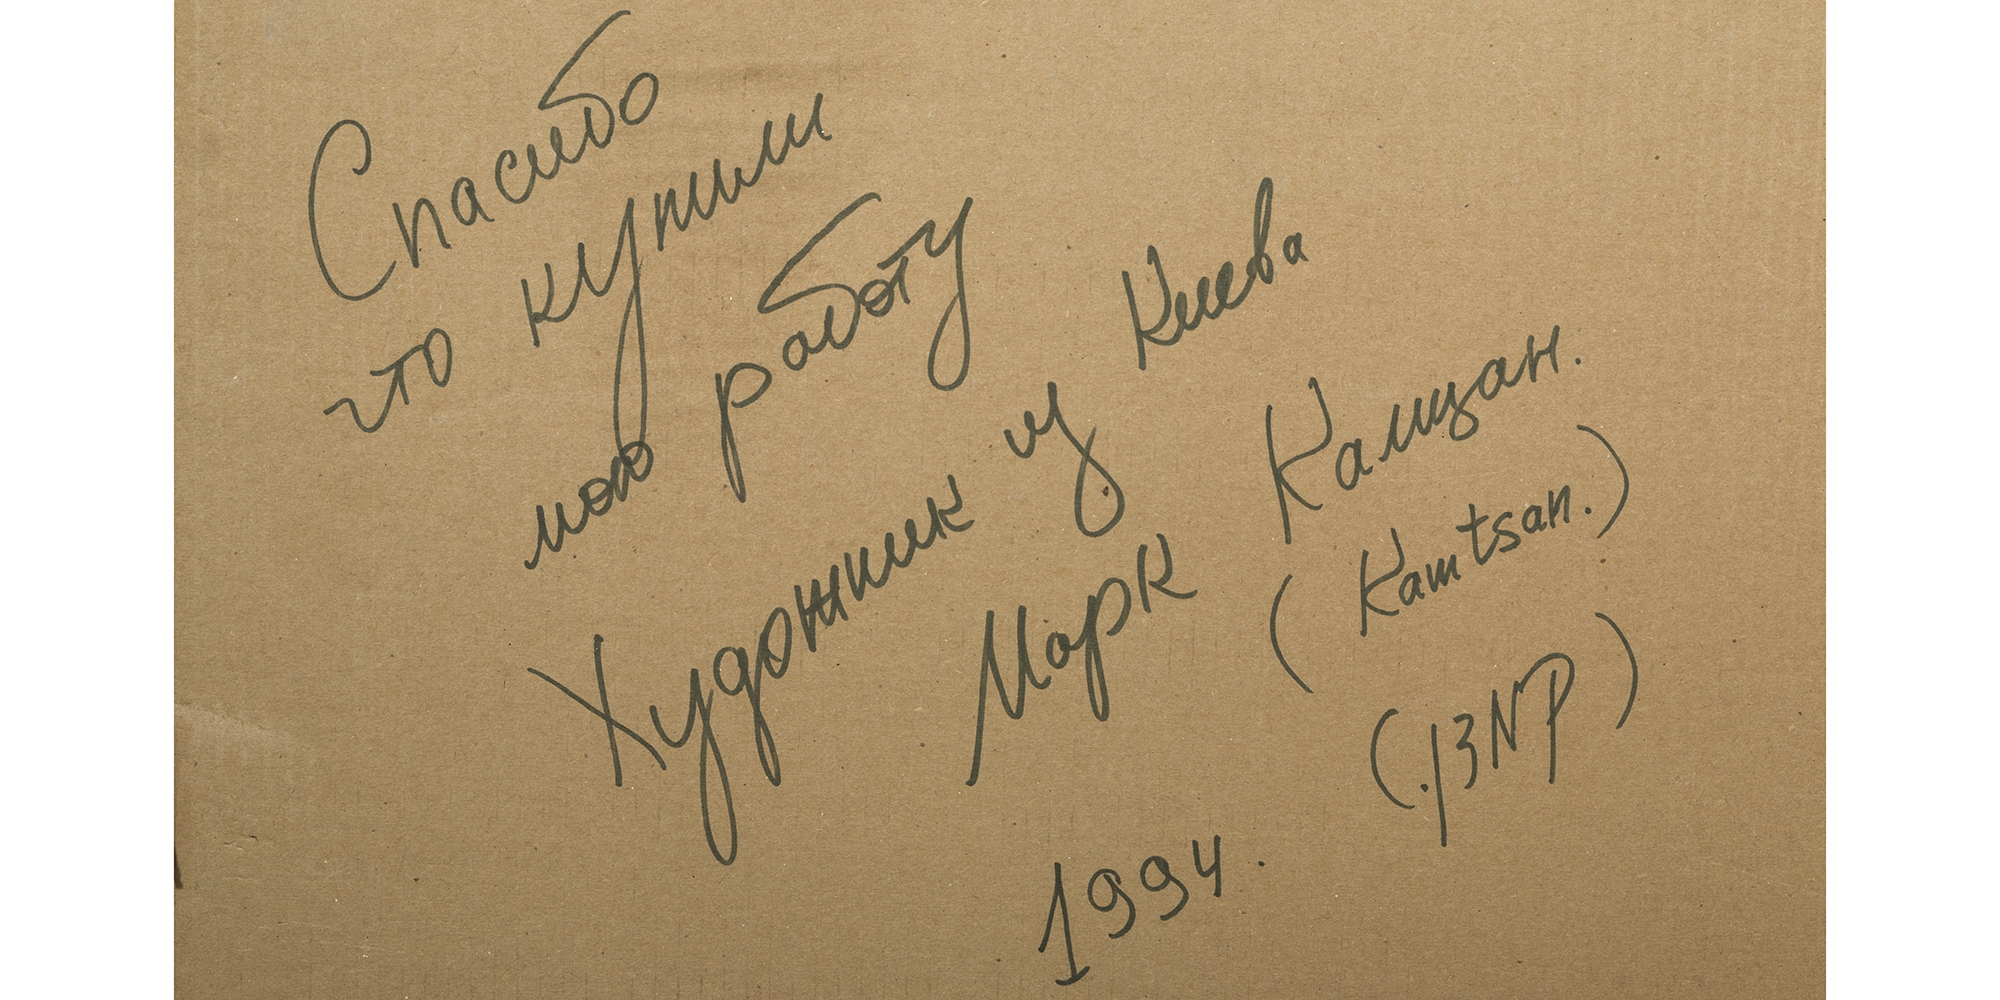 Спасибо
что купили
мою работу
Художник из Киева
Марк Камцан.
(Kamtsan.)
1994.